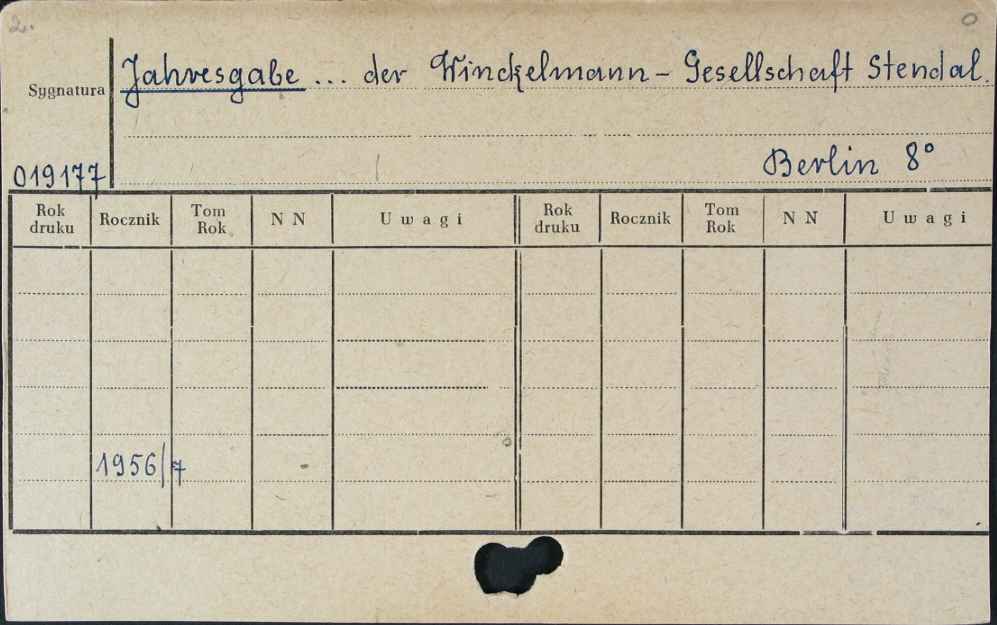 2.
0
Sygnatura
Jahresgabe ... der Winckelmann - Gesellschaft Stendal.
Berlin 8°
019177
Rok druku Rocznik Tom Rok N N Uwagi Rok druku Rocznik Tom Rok N N Uwagi
1956/7